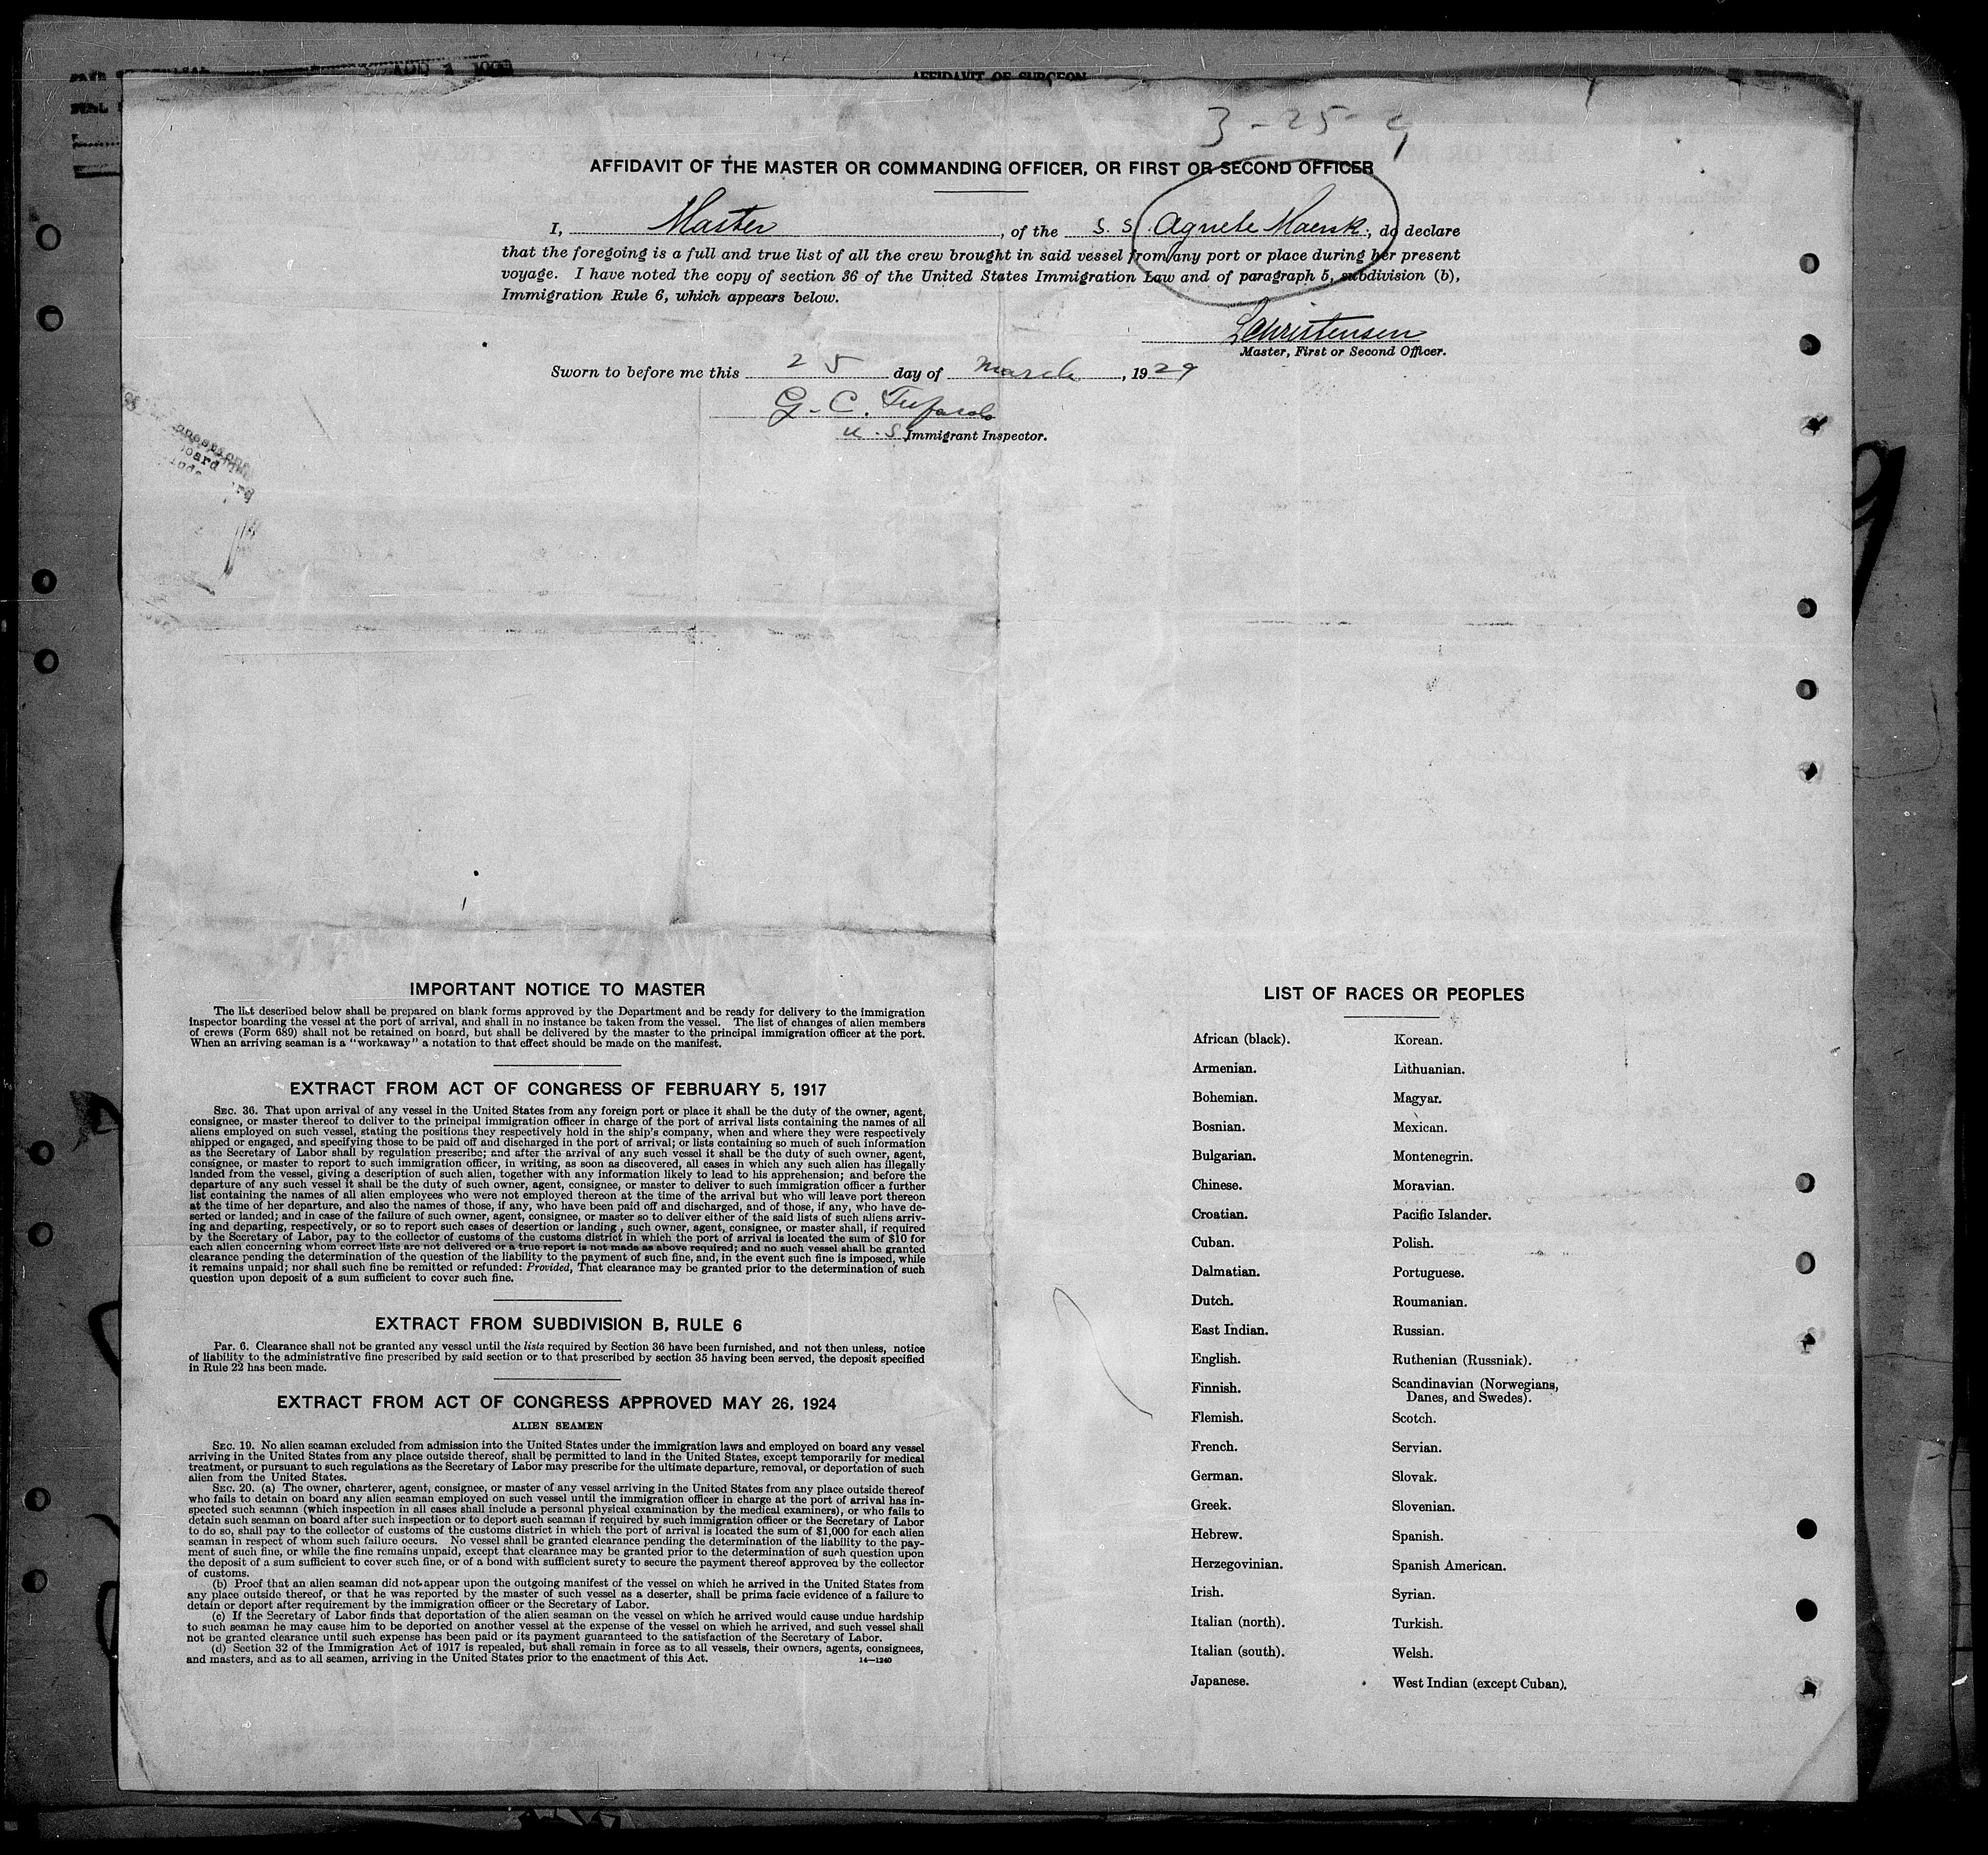 AFFIDAVIT OF SURGEON
3-25-29
AFFIDAVIT OF THE MASTER OR COMMANDING OFFICER, OR FIRST OR SECOND OFFICER
I, Master, of the S. S. Agnete Maersk, do declare
that the foregoing is a full and true list of all the crew brought in said vessel from any port or place during her present
voyage. I have noted the copy of section 36 of the United States Immigration Law and of paragraph 5, subdivision (b),
Immigration Rule 6, which appears below.
Christensen
Master, First or Second Officer.
Sworn to before me this 25 day of March, 1929
G. C.
U. S. Immigrant Inspector.
IMPORTANT NOTICE TO MASTER
The list described below shall be prepared on blank forms approved by the Department and be ready for delivery to the immigration
inspector boarding the vessel at the port of arrival, and shall in no instance be taken from the vessel. The list of changes of alien members
of crews (Form 689) shall not be retained on board, but shall be delivered by the master to the principal immigration officer at the port.
When an arriving seaman is a "workaway" a notation to that effect should be made on the manifest.
EXTRACT FROM ACT OF CONGRESS OF FEBRUARY 5, 1917
SEC. 36. That upon arrival of any vessel in the United States from any foreign port or place it shall be the duty of the owner, agent,
consignee, or master thereof to deliver to the principal immigration officer in charge of the port of arrival lists containing the names of all
aliens employed on such vessel, stating the positions they respectively hold in the ship's company, when and where they were respectively
shipped or engaged, and specifying those to be paid off and discharged in the port of arrival; or lists containing so much of such information
as the Secretary of Labor shall by regulation prescribe; and after the arrival of any such vessel it shall be the duty of such owner, agent,
consignee, or master to report to such immigration officer, in writing, as soon as discovered, all cases in which any such alien has illegally
landed from the vessel, giving a description of such alien, together with any information likely to lead to his apprehension; and before the
departure of any such vessel it shall be the duty of such owner, agent, consignee, or master to deliver to such immigration officer a further
list containing the names of all alien employees who were not employed thereon at the time of the arrival but who will leave port thereon
at the time of her departure, and also the names of those, if any, who have been paid off and discharged, and of those, if any, who have de-
serted or landed; and in case of the failure of such owner, agent, consignee, or master so to deliver either of the said lists of such aliens arriv-
ing and departing, respectively, or so to report such cases of desertion or landing, such owner, agent, consignee, or master shall, if required
by the Secretary of Labor, pay to the collector of customs of the customs district in which the port of arrival is located the sum of $10 for
each alien concerning whom correct lists are not delivered or a true report is not made as above required; and no such vessel shall be granted
clearance pending the determination of the question of the liability to the payment of such fine, and, in the event such fine is imposed, while
it remains unpaid; nor shall such fine be remitted or refunded: Provided, That clearance may be granted prior to the determination of such
question upon deposit of a sum sufficient to cover such fine.
EXTRACT FROM SUBDIVISION B, RULE 6
Par. 6. Clearance shall not be granted any vessel until the lists required by Section 36 have been furnished, and not then unless, notice
of liability to the administrative fine prescribed by said section or to that prescribed by section 35 having been served, the deposit specified
in Rule 22 has been made.
EXTRACT FROM ACT OF CONGRESS APPROVED MAY 26, 1924
ALIEN SEAMEN
SEC. 19. No alien seaman excluded from admission into the United States under the immigration laws and employed on board any vessel
arriving in the United States from any place outside thereof, shall be permitted to land in the United States, except temporarily for medical
treatment, or pursuant to such regulations as the Secretary of Labor may prescribe for the ultimate departure, removal, or deportation of such
alien from the United States.
SEC. 20. (a) The owner, charterer, agent, consignee, or master of any vessel arriving in the United States from any place outside thereof
who fails to detain on board any alien seaman employed on such vessel until the immigration officer in charge at the port of arrival has in-
spected such seaman (which inspection in all cases shall include a personal physical examination by the medical examiners), or who fails to
detain such seaman on board after such inspection or to deport such seaman if required by such immigration officer or the Secretary of Labor
to do so, shall pay to the collector of customs of the customs district in which the port of arrival is located the sum of $1,000 for each alien
seaman in respect of whom such failure occurs. No vessel shall be granted clearance pending the determination of the liability to the pay-
ment of such fine, or while the fine remains unpaid, except that clearance may be granted prior to the determination of such question upon
the deposit of a sum sufficient to cover such fine, or of a bond with sufficient surety to secure the payment thereof approved by the collector
of customs.
(b) Proof that an alien seaman did not appear upon the outgoing manifest of the vessel on which he arrived in the United States from
any place outside thereof, or that he was reported by the master of such vessel as a deserter, shall be prima facie evidence of a failure to
detain or deport after requirement by the immigration officer or the Secretary of Labor.
(c) If the Secretary of Labor finds that deportation of the alien seaman on the vessel on which he arrived would cause undue hardship
to such seaman he may cause him to be deported on another vessel at the expense of the vessel on which he arrived, and such vessel shall
not be granted clearance until such expense has been paid or its payment guaranteed to the satisfaction of the Secretary of Labor.
(d) Section 32 of the Immigration Act of 1917 is repealed, but shall remain in force as to all vessels, their owners, agents, consignees,
and masters, and as to all seamen, arriving in the United States prior to the enactment of this Act.
14—1240
LIST OF RACES OR PEOPLES
African (black). Korean.
Armenian. Lithuanian.
Bohemian. Magyar.
Bosnian. Mexican.
Bulgarian. Montenegrin.
Chinese. Moravian.
Croatian. Pacific Islander.
Cuban. Polish.
Dalmatian. Portuguese.
Dutch. Roumanian.
East Indian. Russian.
English. Ruthenian (Russniak).
Finnish. Scandinavian (Norwegians,
Danes, and Swedes).
Flemish. Scotch.
French. Servian.
German. Slovak.
Greek. Slovenian.
Hebrew. Spanish.
Herzegovinian. Spanish American.
Irish. Syrian.
Italian (north). Turkish.
Italian (south). Welsh.
Japanese. West Indian (except Cuban).